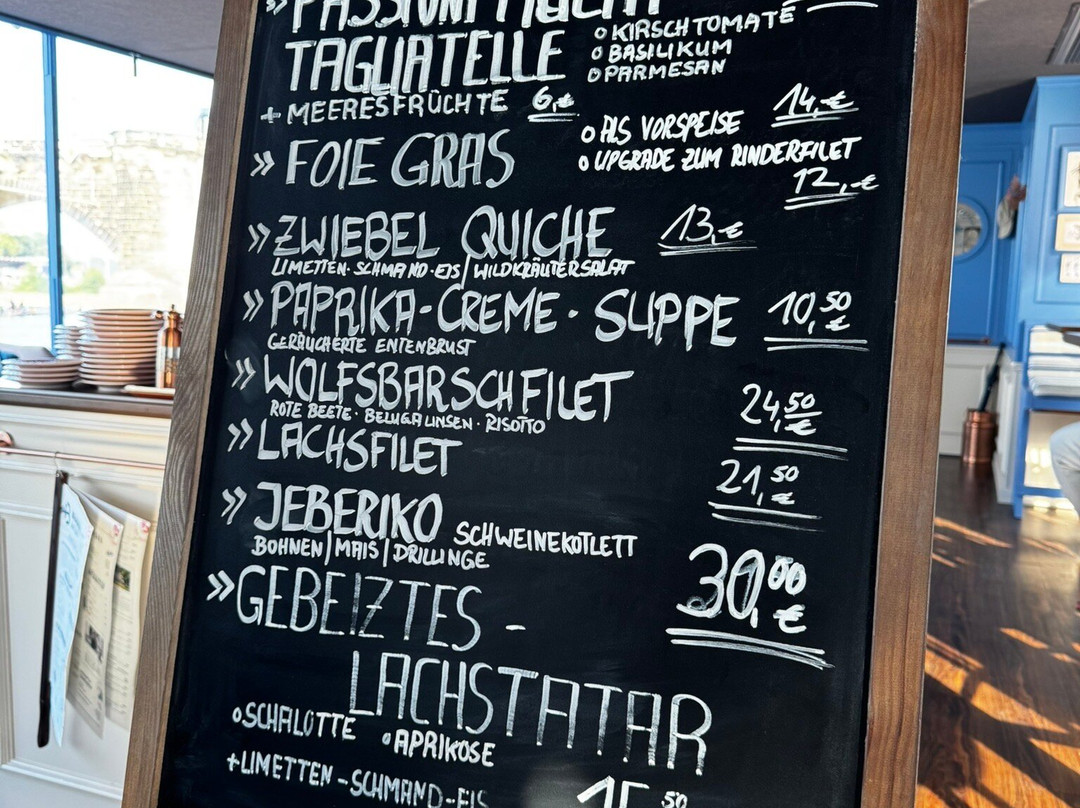 TAGLIATELLE
o KIRSCHTOMATE
o BASILIKUM
o PARMESAN
+ MEERESFRÜCHTE 6,-€
» FOIE GRAS
o ALS VORSPEISE 14,-€
o UPGRADE ZUM RINDERFILET
12,-€
» ZWIEBEL QUICHE 13,-€
LIMETTEN-SCHMAND-EIS/WILDKRÄUTERSALAT
» PAPRIKA-CREME-SUPPE 10,50 €
GERÄUCHERTE ENTENBRUST
» WOLFSBARSCHFILET 24,50 €
ROTE BEETE · BELUGALINSEN · RISOTTO
» LACHSFILET 21,50 €
» JEBERIKO SCHWEINEKOTLETT 30,00 €
BOHNEN/MAIS/DRILLINGE
» GEBEIZTES-
LACHSTATAR
o SCHALOTTE o APRIKOSE
+ LIMETTEN-SCHMAND-EIS